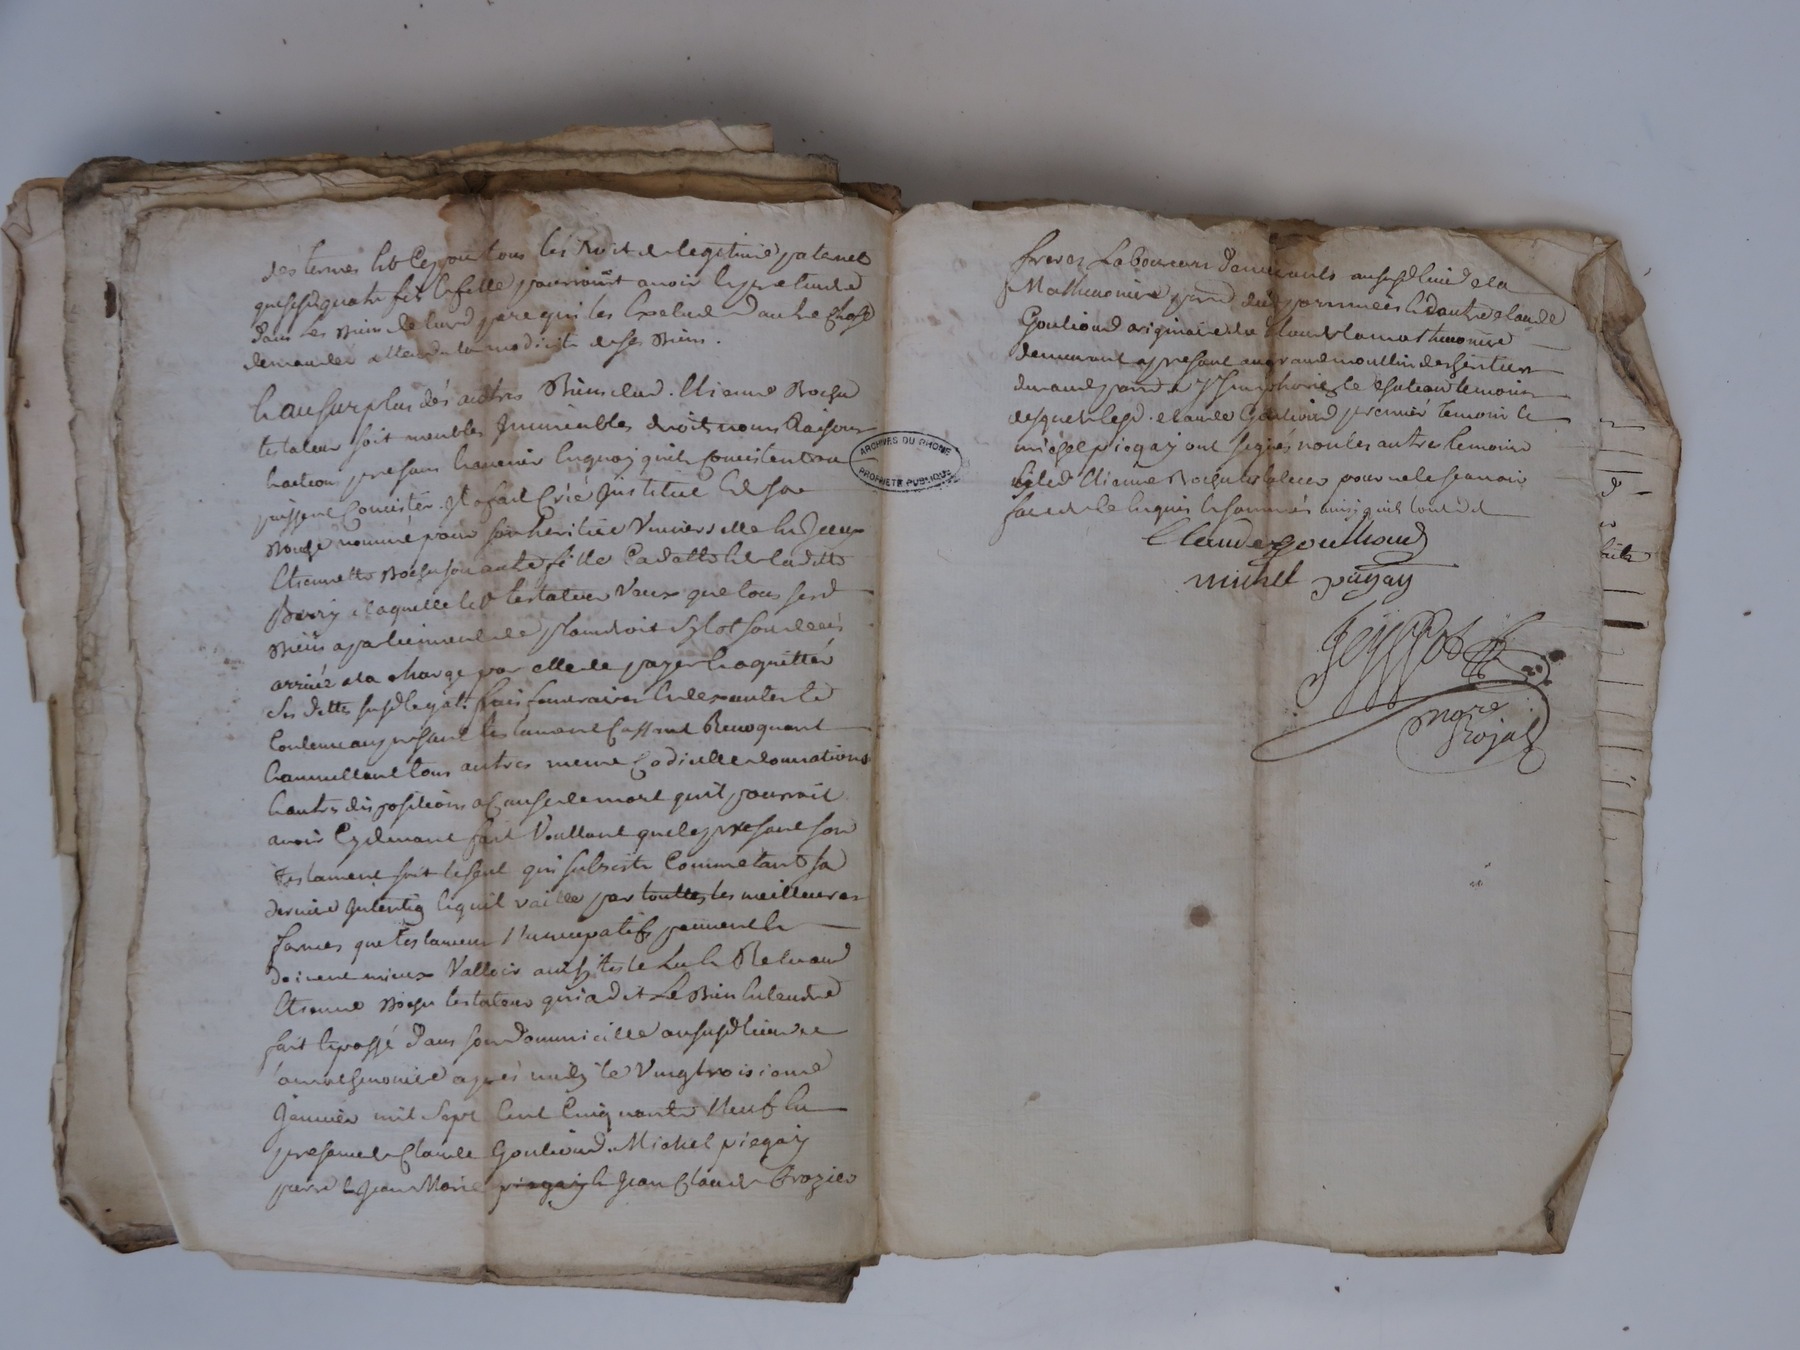 des termes et ce pour tous les droit de legitime paternel
que sesd quatre fils et fille pourroint avoir et pretendre
dans les biens de leurd pere qui les exclud d'autre chose
demander attendu la modicité de ses biens.
Et au surplus dés autres Biens dud. Etienne Boesu
testateur soit meubles Immeubles droits noms Raisons
et actions presans et avenir en quoy qu'ils Concistent ou
puissent Concister. Il a fait Créé Institué et de sa
Bouche nommé pour son heritiere Vniverselle led
Etiennette Boesu son autre fille Cadette et de laditte
Barry a laquelle led testateur Veux que tous sesd
Biens apartiennent de plain droit sytot son decés
arrivé a la charge par elle de payer et aquitter
ses dettes susd legats frais funeraires et de xecuter le
Contenu au presant testament Cassant Revoquant
et annullant tous autres meme Codicille donnations
et autres dispositions a Cause de mort qu'il pourroit
avoir Cydevant fait Voullant que le presant son
testament soit le seul qui subsiste Comme etant sa
derniere Intention et quil vaille par touttes les meilleures
formes que testament Nuncupatif peuvent et
doivent mieux Valloir ainsi testé Lu et Relu aud
Etienne Boesu testateur qui a dit Le Bien Entendre
fait et passé dans son Dommicille au susd lieu de
la mathemoniere aprés midy le Vingt troisieme
Janvier mil Sept Cent Cinquante Neuf En
presance de Claude Goutiond. Michel piegay
parr et Jean Marie piegay et Jean Claude Crozier
freres Laboureurs demeurants au susd lieu de la
Mathemoniere parr dud par nommées et d'autre claude
Goutiond originaire du lieu de la mathemoniere
demeurant a presant au grand moullin des sentier
durand parr de St Simphorien le chateau temoins
desquels lesd. claude Goutiond premier temoin et
michel piegay ont signés non les autres temoins
ny led Etienne Boesu testateur pour ne le scavoir
faire de ce enquis et sommés ainsi quils ont dit
Claude goutiond
michel piegay
nore
Royal
ARCHIVES DU RHONE
PROPRIETE PUBLIQUE